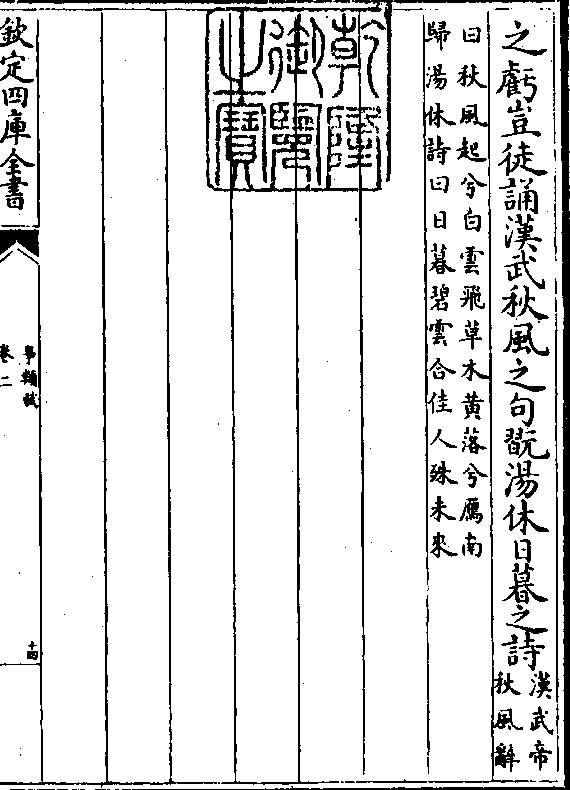 之虧豈徒誦漢武秋風之句翫湯休日暮之詩
漢武帝
秋風辭
曰秋風起兮白雲飛草木黄落兮鴈南
歸湯休詩曰日暮碧雲合佳人殊未來
乾隆
御覽
之寶
欽定四庫全書
事類賦
卷二
十四